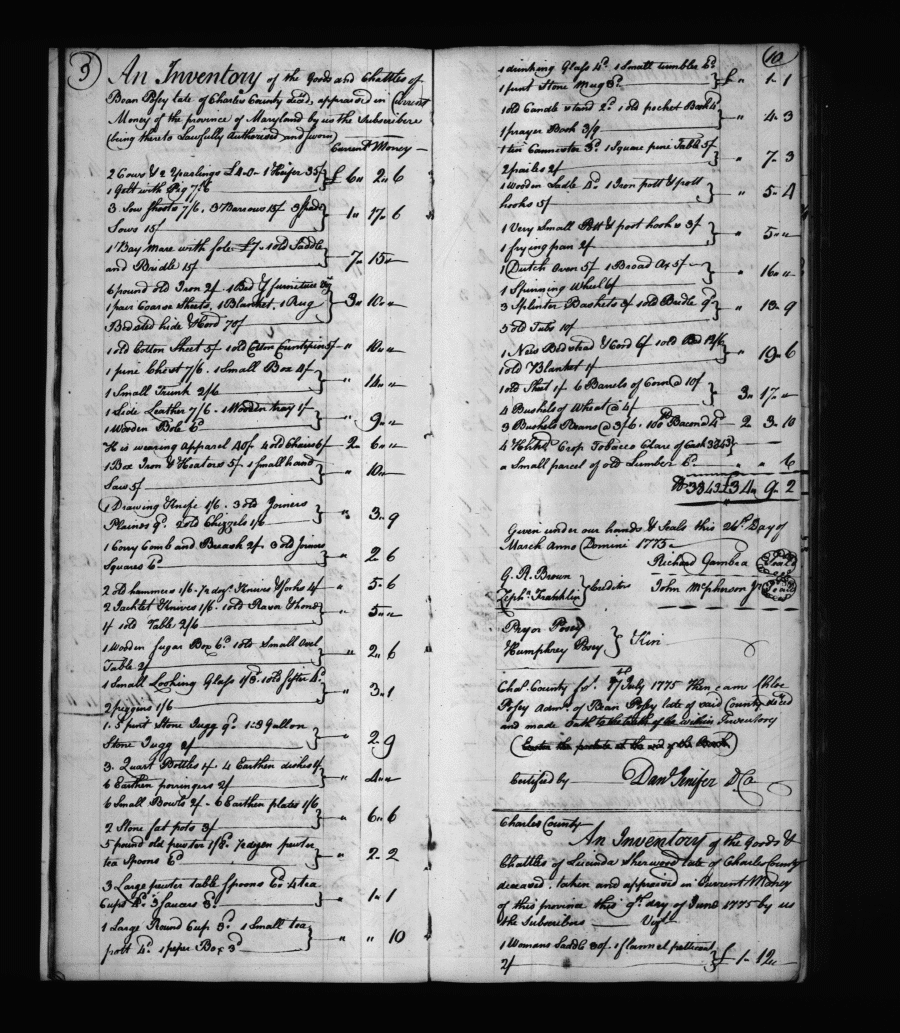 9
An Inventory of the Goods and Chattles of
Bean Posey late of Charles County decd, appraised in Current
Money of the province of Maryland by us the Subscribers
(being thereto Lawfully Authorized and sworn)
Current Money —
2 Cows & 2 Yearlings £4-0- 1 Heifer 35/
1 Gelt with Pig 7/6 } £ 6 " 2 " 6
3 Sow shoats 7/6. 3 Barrows 15/.
Sows 15/ } 1 " 17 " 6
1 Bay Mare with fole £7. 1 old Saddle
and Bridle 15/ } 7 " 15 "
6 pound old Iron 2/. 1 Bed & furniture
1 pair Coarse Sheets, 1 Blanket, 1 Rug
Bedsted hide & Cord 70/ } 3 " 10 " "
1 old Cotton Sheet 5/ 1 old Cotton Counterpin 5/ " 10 " "
1 pine Chest 7/6. 1 Small Box 4/
1 Small Trunk 2/6 } " 14 " "
1 Side Leather 7/6 - 1 Wooden tray 1/
1 Wooden Bole 6d } " 9 " "
His wearing Apparel 40/. 4 old Chairs 6/ — 2 " 6 " "
1 Box Iron & Heaters 5/. 1 Small hand
Saw 5/ } " 10 "
1 Drawing Knife 1/6. 3 old Joiners
Plaines 9d. 2 old Chizzels 1/6 } " 3 " 9
1 Corry Comb and Brush 2/. 3 old Joiners
Squares 6d } " 2 6
2 Old hammers 1/6. ½ doz. Knives & forks 4/ — " 5 " 6
2 Jacklet Knives 1/6. 1 old Razor & hone
1/ 1 old Table 2/6 } " 5 " "
1 Wooden Sugar Box 6d 1 old Small Oval
Table 2/ } " 2 " 6
1 Small Looking Glass 1/3. 1 old Sifter 4d
2 piggins 1/6 } " 3 " 1
1. 5 pint Stone Jugg 9d. 1-3 Gallon
Stone Jugg 2/ } " 2 9
3. Quart Bottles 1/. 4 Earthen dishes 1/
6 Earthen porringers 2/ } " 4 " "
6 Small Bowls 2/ - 6 Earthen plates 1/6
2 Stone fat pots 3/ } " 6 " 6
5 pound old pewter 1/8. ½ dozen pewter
tea Spoons 6d } " 2 " 2
3 Large pewter table Spoons 6d. 4 tea
Cups 4d. 3 Saucers 3d } " 1 " 1
1 Large Round Cup 3d. 1 Small tea
pott 4d. 1 peper Box 3d } " " 10
10
1 drinking Glass 4d. 1 Small tumbler 6d
1 pint Stone Mug 3d } £ " 1 " 1
1 old Candle stand 2d. 1 old pocket Book 4d
1 prayer Book 3/9 } " 4 " 3
1 tin Cannester 3d. 1 Square pine Table 5/
2 pailes 2/ } " 7 " 3
1 Wooden Ladle 4d. 1 Iron pott & pott
hooks 5/ } " 5 " 4
1 Very Small Pott & pott hooks 3/
1 frying pan 2/ } " 5 " "
1 Dutch Oven 5/ 1 Broad Ax 5/
1 Spinning Wheel 6/ } " 16 " "
3 Splinter Baskets 3/ 1 old Bridle 9d
5 old Tubs 10/ } " 13 " 9
1 New Bedstead & Cord 6/ 1 old Bed 12/6
1 old Blanket 1/ } " 19 " 6
1 old Sheet 1/. 6 Barrels of Corn @ 10/
4 Bushels of Wheat @ 4/ 3 " 17 " "
3 Bushels Beans @ 3/6. 100lb Bacon @ 4d — 2 3 " 10
4 Hhds Crop Tobacco Clare of Cask 3343
a Small parcel of old Lumber 6d " " 6
lb 3343 £ 34 " 9 " 2
Given under our hands & Seals this 26th Day of
March Anno Domini 1775
Richard Gambra (Seal)
G. R. Brown
Zeph. Franklin } Creditors
John McPherson Jr (Seal)
Pryor Posey
Humphrey Posey } Kin
Chas. County fst. 17th July 1775 Then came Chloe
Posey Admx. of Bean Posey late of said County decd
and made Oath to the truth of the within Inventory
(Enter the probate at the end of the Book)
Certified by Danl. Jenifer D Co
Charles County
An Inventory of the Goods &
Chattles of Lucinda Sherwood late of Charles County
deceased. taken and appraised in Current Money
of this province this 9th day of June 1775 by us
the Subscribers — Vizt
1 Womans Saddle 30/. 1 flannel petticoat
2/ } £ 1 " 12 "